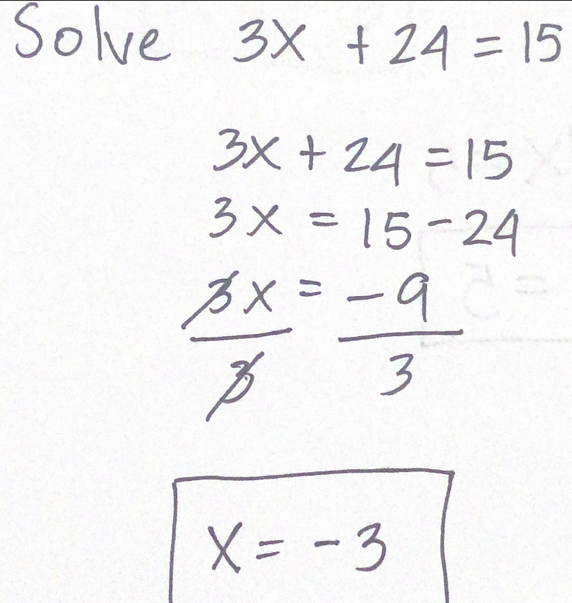 Solve 3x + 24 = 15
3x + 24 = 15
3x = 15 - 24
3x = -9
3 3
x = -3